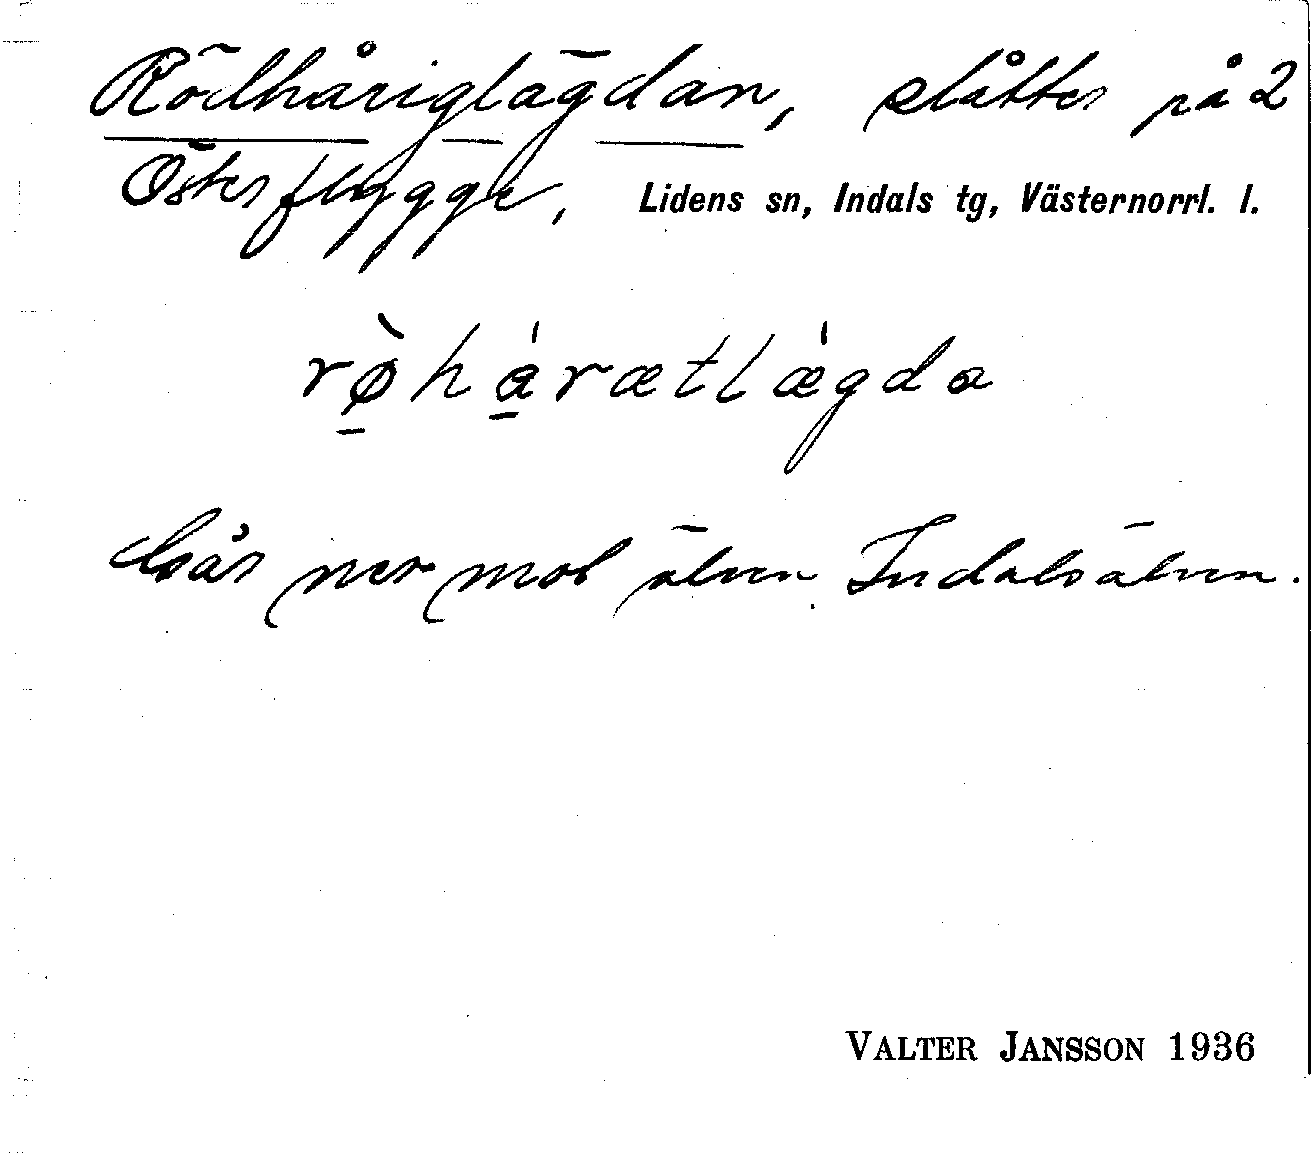 Rödhåriglägdan, slåtter på 2
Österflygge, Lidens sn, Indals tg, Västernorrl. l.
rø̱̀hḁ̱́rætlǽgda
Går ner mot älven Indalsälven.
VALTER JANSSON 1936